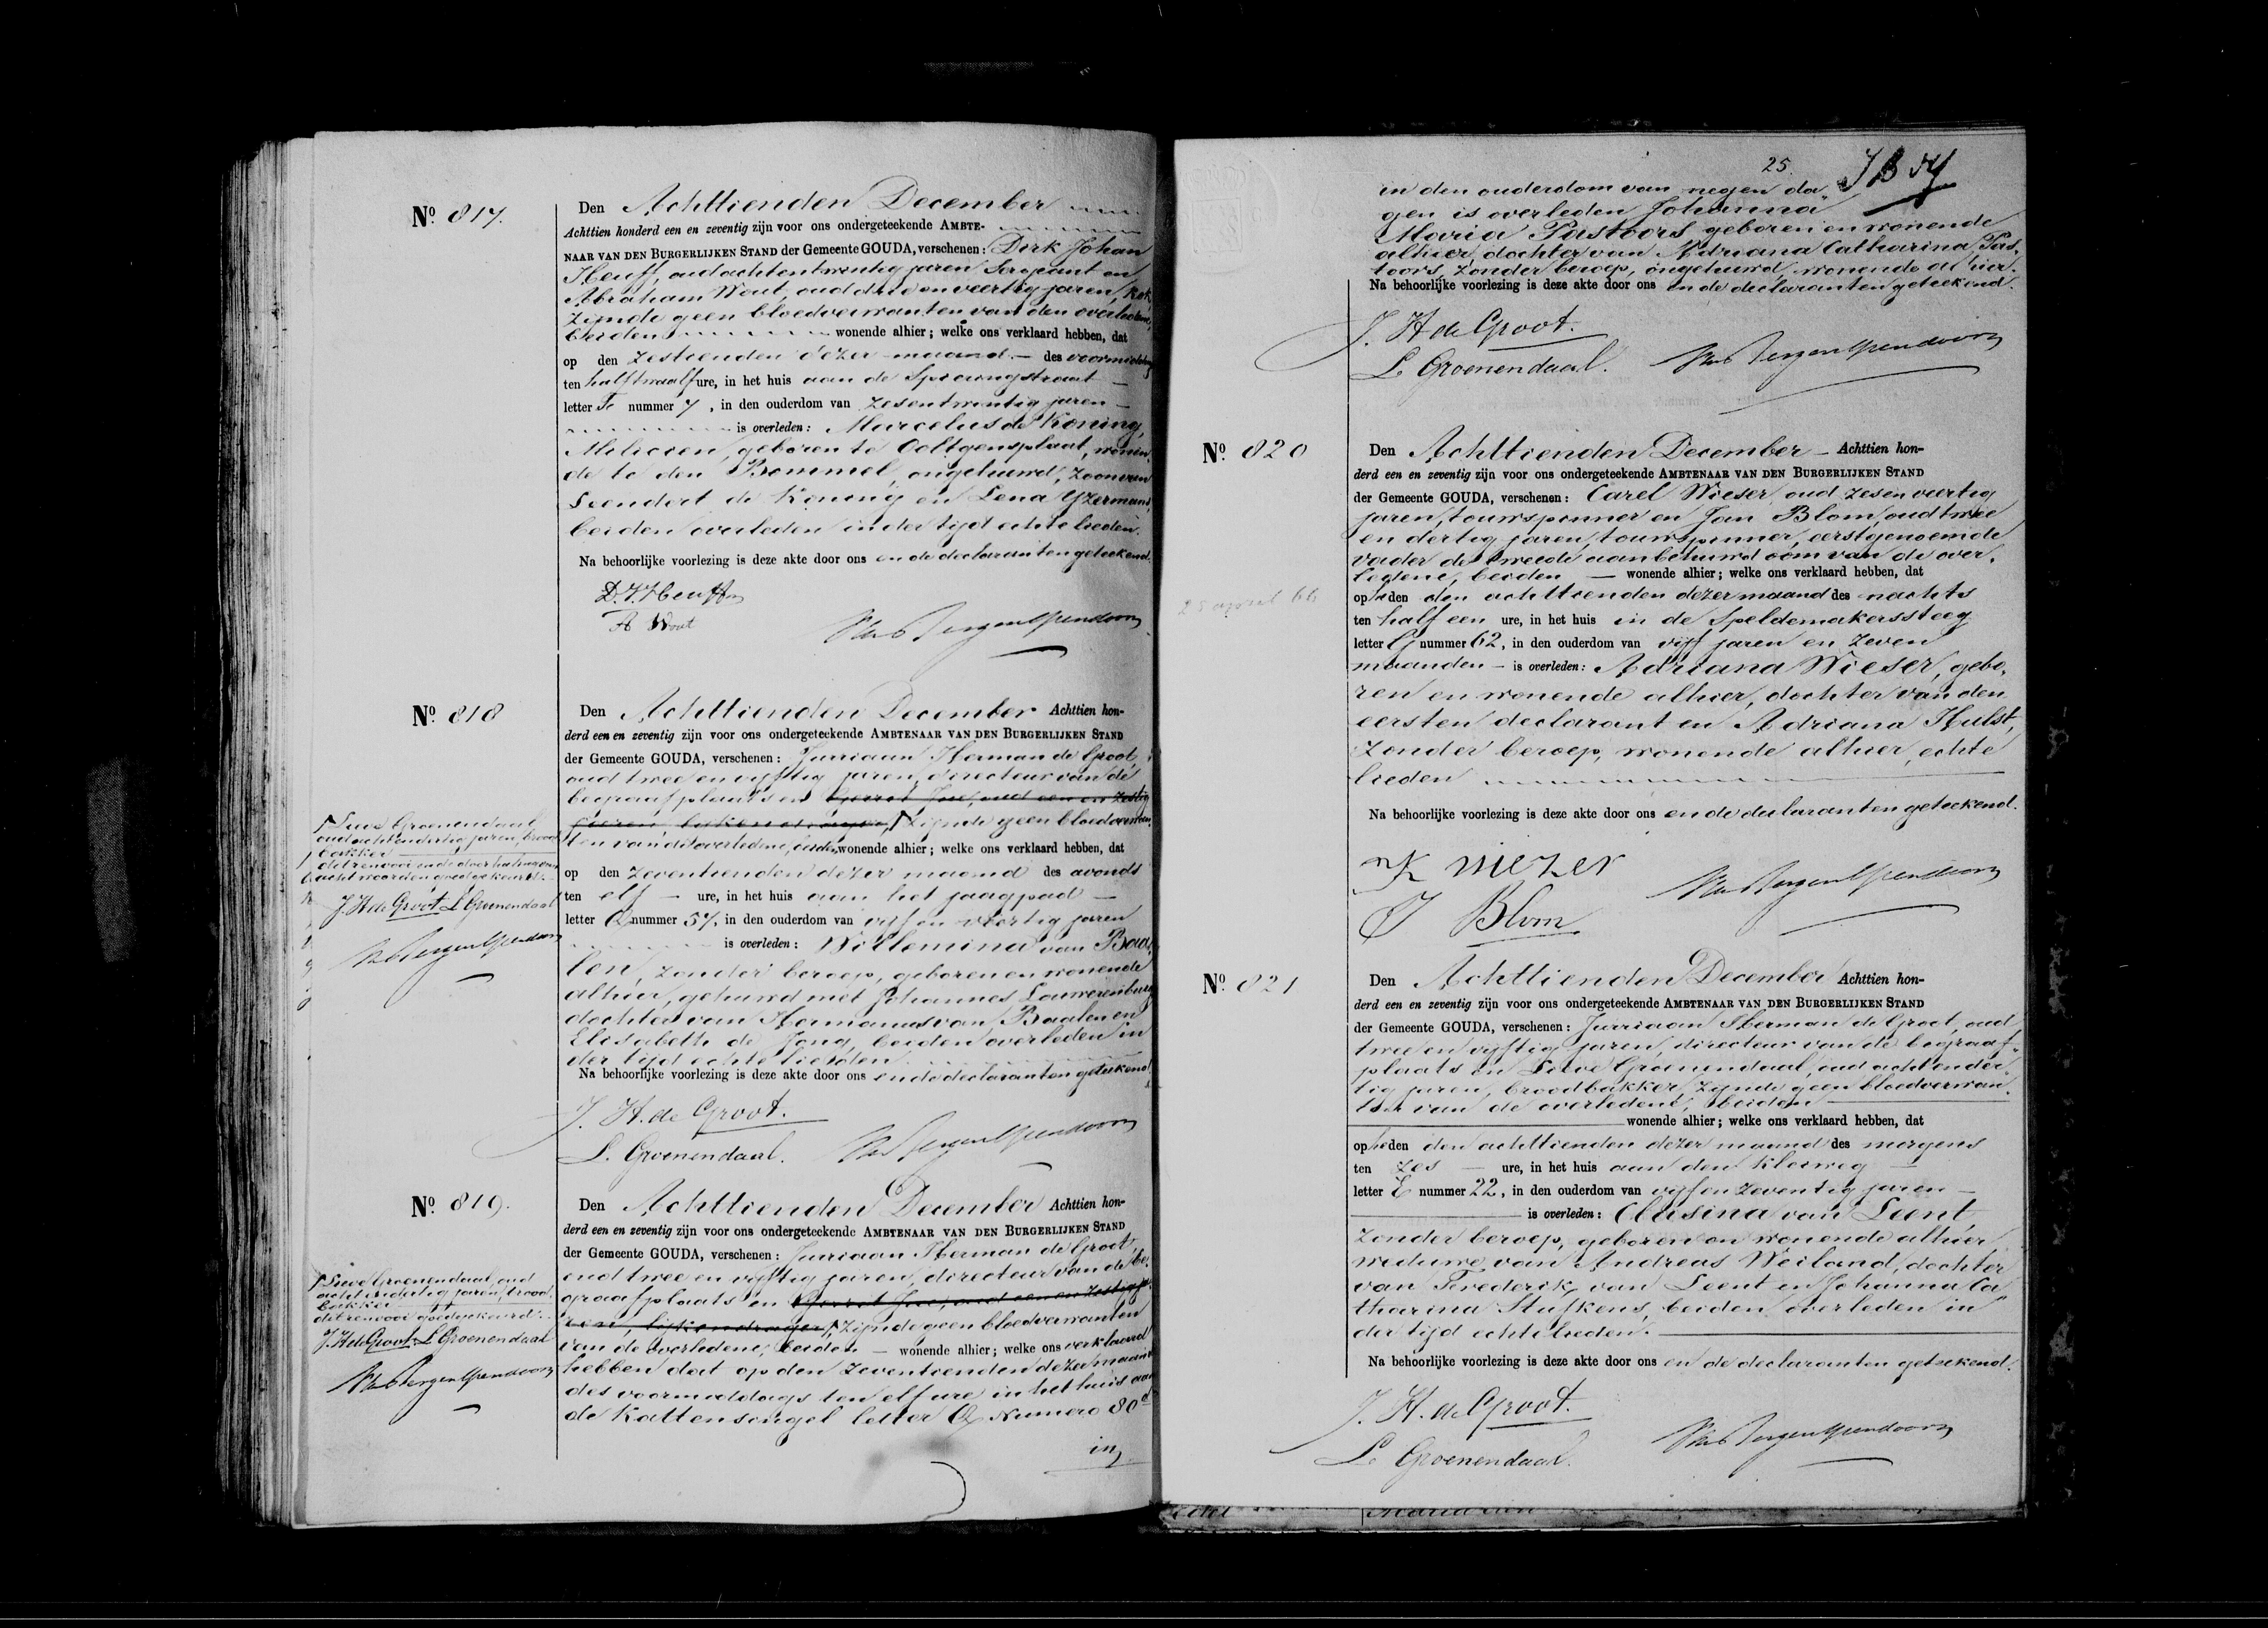 Nº 817.
Den Achttienden December
Achttien honderd een en zeventig zijn voor ons ondergeteekende AMBTE-
NAAR VAN DEN BURGERLIJKEN STAND der Gemeente GOUDA, verschenen: Dirk Johan
Heuff, oud achtentwintig jaren Sergeant en
Abraham Wout, oud drie en veertig jaren, kok,
zijnde geen bloedverwanten van den overledene,
beiden wonende alhier; welke ons verklaard hebben, dat
op den zestienden dezer maand des voormiddags
ten half twaalf ure, in het huis aan de Spieringstraat
letter F nummer 7, in den ouderdom van zesentwintig jaren
is overleden: Marcelus de Koning,
Milicien, geboren te Ooltgensplaat, wonen-
de te den Bommel, ongehuwd, zoon van
Leendert de Koning en Lena Yzerman,
beiden overleden in der tijd echte lieden.
Na behoorlijke voorlezing is deze akte door ons en de declaranten geteekend.
D. J. Heuff
A Wout
Nº 818
Den Achttienden December Achttien hon-
derd een en zeventig zijn voor ons ondergeteekende AMBTENAAR VAN DEN BURGERLIJKEN STAND
der Gemeente GOUDA, verschenen: Jurriaan Herman de Groot,
oud twee en vijftig jaren, directeur van de
begraafplaats en Gerrit oud een en zestig
jaren, zijnde geen bloedverwan-
ten van de overledene, beiden wonende alhier; welke ons verklaard hebben, dat
op den zeventienden dezer maand des avonds
ten elf ure, in het huis aan het jaagpad
letter Q nummer 57, in den ouderdom van vijf en veertig jaren
is overleden: Willemina van Baa-
len, zonder beroep, geboren en wonende
alhier, gehuwd met Johannes Louwerenburg
dochter van Hermanus van Baalen en
Elisabeth de Jong, beiden overleden in
der tijd echte lieden.
Na behoorlijke voorlezing is deze akte door ons en de declaranten geteekend.
J. H. de Groot.
L. Groenendaal.
Lieve Groenendaal
oud achtendertig jaren, brood
bakker
dit renvooi en de doorhaling van
acht woorden goedgekeurd.
J. H de Groot L Groenendaal
Nº 819.
Den Achttienden December Achttien hon-
derd een en zeventig zijn voor ons ondergeteekende AMBTENAAR VAN DEN BURGERLIJKEN STAND
der Gemeente GOUDA, verschenen: Jurriaan Herman de Groot,
oud twee en vijftig jaren, directeur van de be-
graafplaats en Gerrit oud een en zestig ja-
ren, lijkendrager, zijnde geen bloedverwanten
van de overledene, beiden wonende alhier; welke ons verklaard
hebben dat op den zeventienden dezer maand
des voormiddags ten elf ure in het huis aan
de Kattensingel letter Q Numero 80d
in
Lieve Groenendaal, oud
achtendertig jaren, brood
bakker
dit renvooi goedgekeurd.
J. H de Groot L Groenendaal
25.
in den ouderdom van negen da
gen is overleden Johanna
Maria Pastoors geboren en wonende
alhier, dochter van Adriana Catharina Pas-
toors, zonder beroep, ongehuwd, wonende alhier.
Na behoorlijke voorlezing is deze akte door ons en de declaranten geteekend.
J. H de Groot.
L. Groenendaal.
Nº 820
Den Achttienden December Achttien hon-
derd een en zeventig zijn voor ons ondergeteekende AMBTENAAR VAN DEN BURGERLIJKEN STAND
der Gemeente GOUDA, verschenen: Carel Wieser oud zesenveertig
jaren, touwspinner en Jan Blom, oud twee
en dertig jaren, touwspinner, eerstgenoemde
vader de tweede aanbehuwd oom van de over-
ledene, beiden wonende alhier; welke ons verklaard hebben, dat
op heden den achttienden dezer maand des nachts
ten half een ure, in het huis in de Speldemakerssteeg
letter G nummer 62, in den ouderdom van vijf jaren en zeven
maanden is overleden: Adriana Wieser, gebo-
ren en wonende alhier, dochter van den
eersten declarant en Adriana Hulst,
zonder beroep, wonende alhier, echte
lieden
Na behoorlijke voorlezing is deze akte door ons en de declaranten geteekend.
25 april 66
K wiezer
J Blom
Nº 821
Den Achttienden December Achttien hon-
derd een en zeventig zijn voor ons ondergeteekende AMBTENAAR VAN DEN BURGERLIJKEN STAND
der Gemeente GOUDA, verschenen: Jurriaan Herman de Groot, oud
twee en vijftig jaren, directeur van de begraaf-
plaats en Lieve Groenendaal, oud achtender-
tig jaren, broodbakker, zijnde geen bloedverwan-
ten van de overledene, beiden
wonende alhier; welke ons verklaard hebben, dat
op heden den achttienden dezer maand des morgens
ten zes ure, in het huis aan den Kleiweg
letter E nummer 22, in den ouderdom van vijf en zeventig jaren
is overleden: Clasina van Lunt,
zonder beroep, geboren en wonende alhier
weduwe van Andreas Weiland, dochter
van Frederik van Leent en Johanna Ca
tharina Stufkens, beiden overleden in
der tijd echtelieden.
Na behoorlijke voorlezing is deze akte door ons en de declaranten geteekend.
J. H. de Groot.
L. Groenendaal.